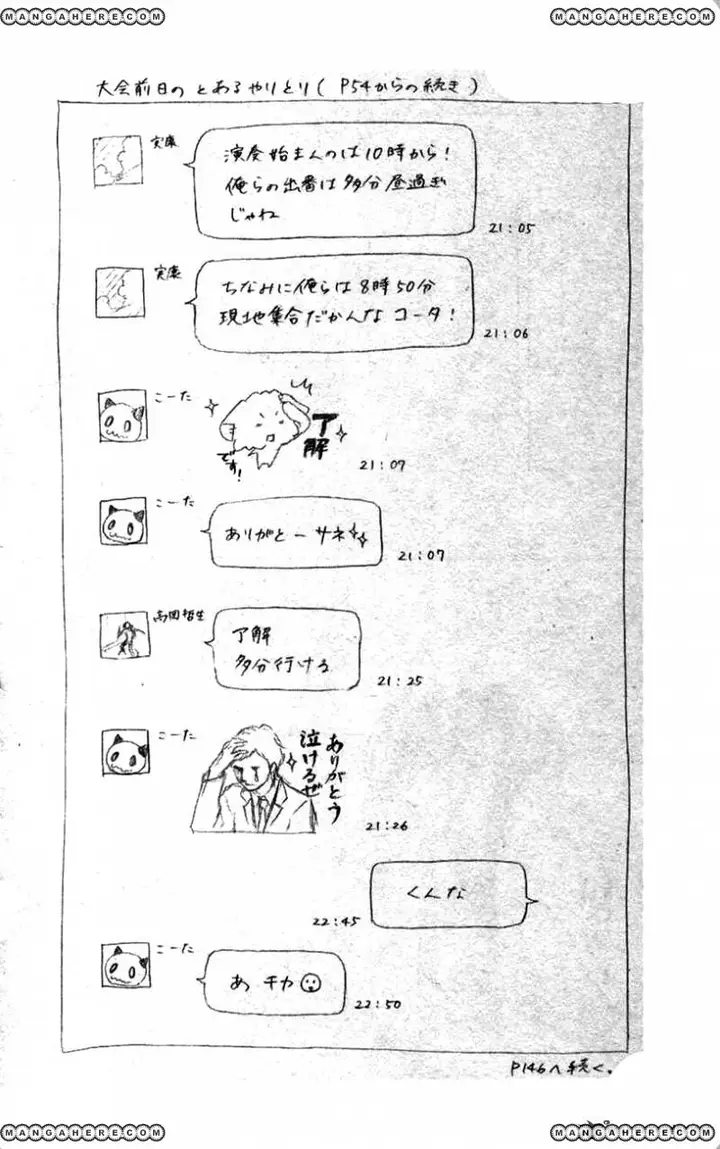 MANGAHERE.COM
MANGAHERE.COM
大会前日の とあるやりとり( P54からの続き )
実康
演奏始まんのは10時から!
俺らの出番は多分昼過ぎ
じゃね
21:05
実康
ちなみに俺らは8時50分
現地集合だかんな コータ!
21:06
こーた
了解
です!
21:07
こーた
ありがとーサネ
21:07
高岡哲生
了解
多分行ける
21:25
こーた
ありがとう
泣けるぜ
21:26
くんな
22:45
こーた
あ チカ
22:50
P146へ続く。
MANGAHERE.COM
MANGAHERE.COM